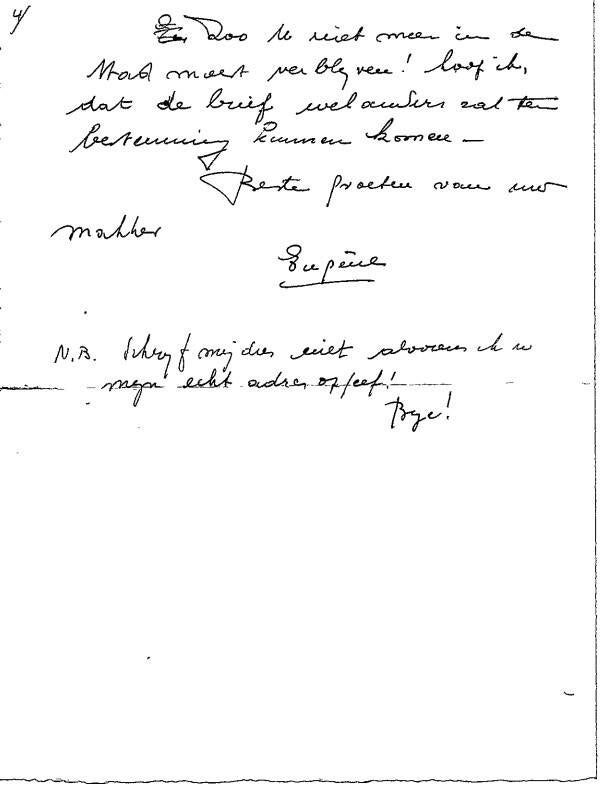 4/
Zoo U niet meer in de
Stad moest verblyven! hoop ik,
dat de brief welanders zal ten
bestemming kunnen komen –
Beste groeten van uw
makker
Eugène
N.B. Schryf mij dus niet alvorens ik u
mijn echt adres opgeef!
Bye!